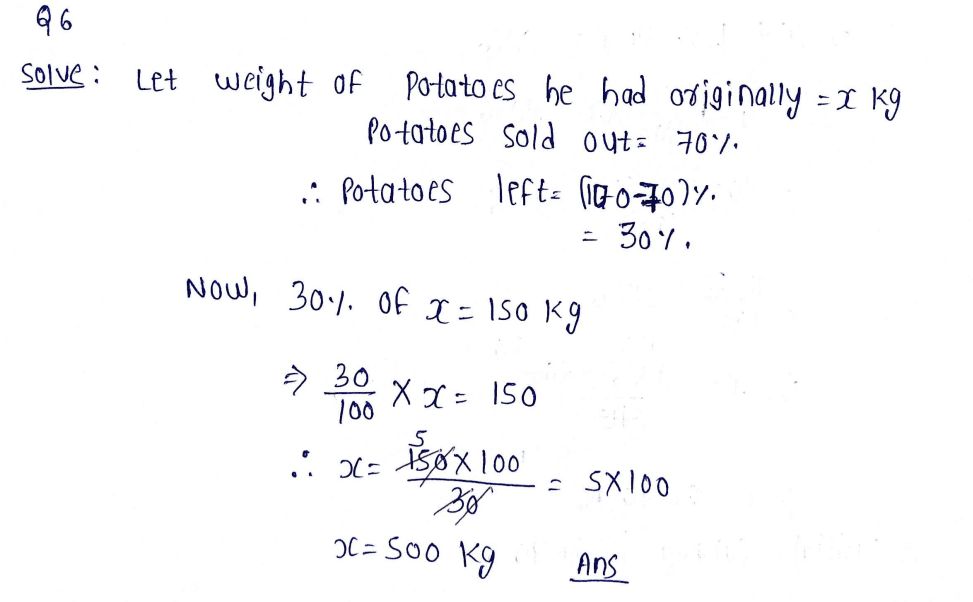 Q6
Solve: Let weight of Potatoes he had originally = x kg
Potatoes sold out = 70%.
∴ Potatoes left = (100-70)%.
= 30%.
Now, 30%. of x = 150 kg
⇒ 30/100 × x = 150
∴ x = 150×100/30 5 = 5×100
x = 500 kg Ans